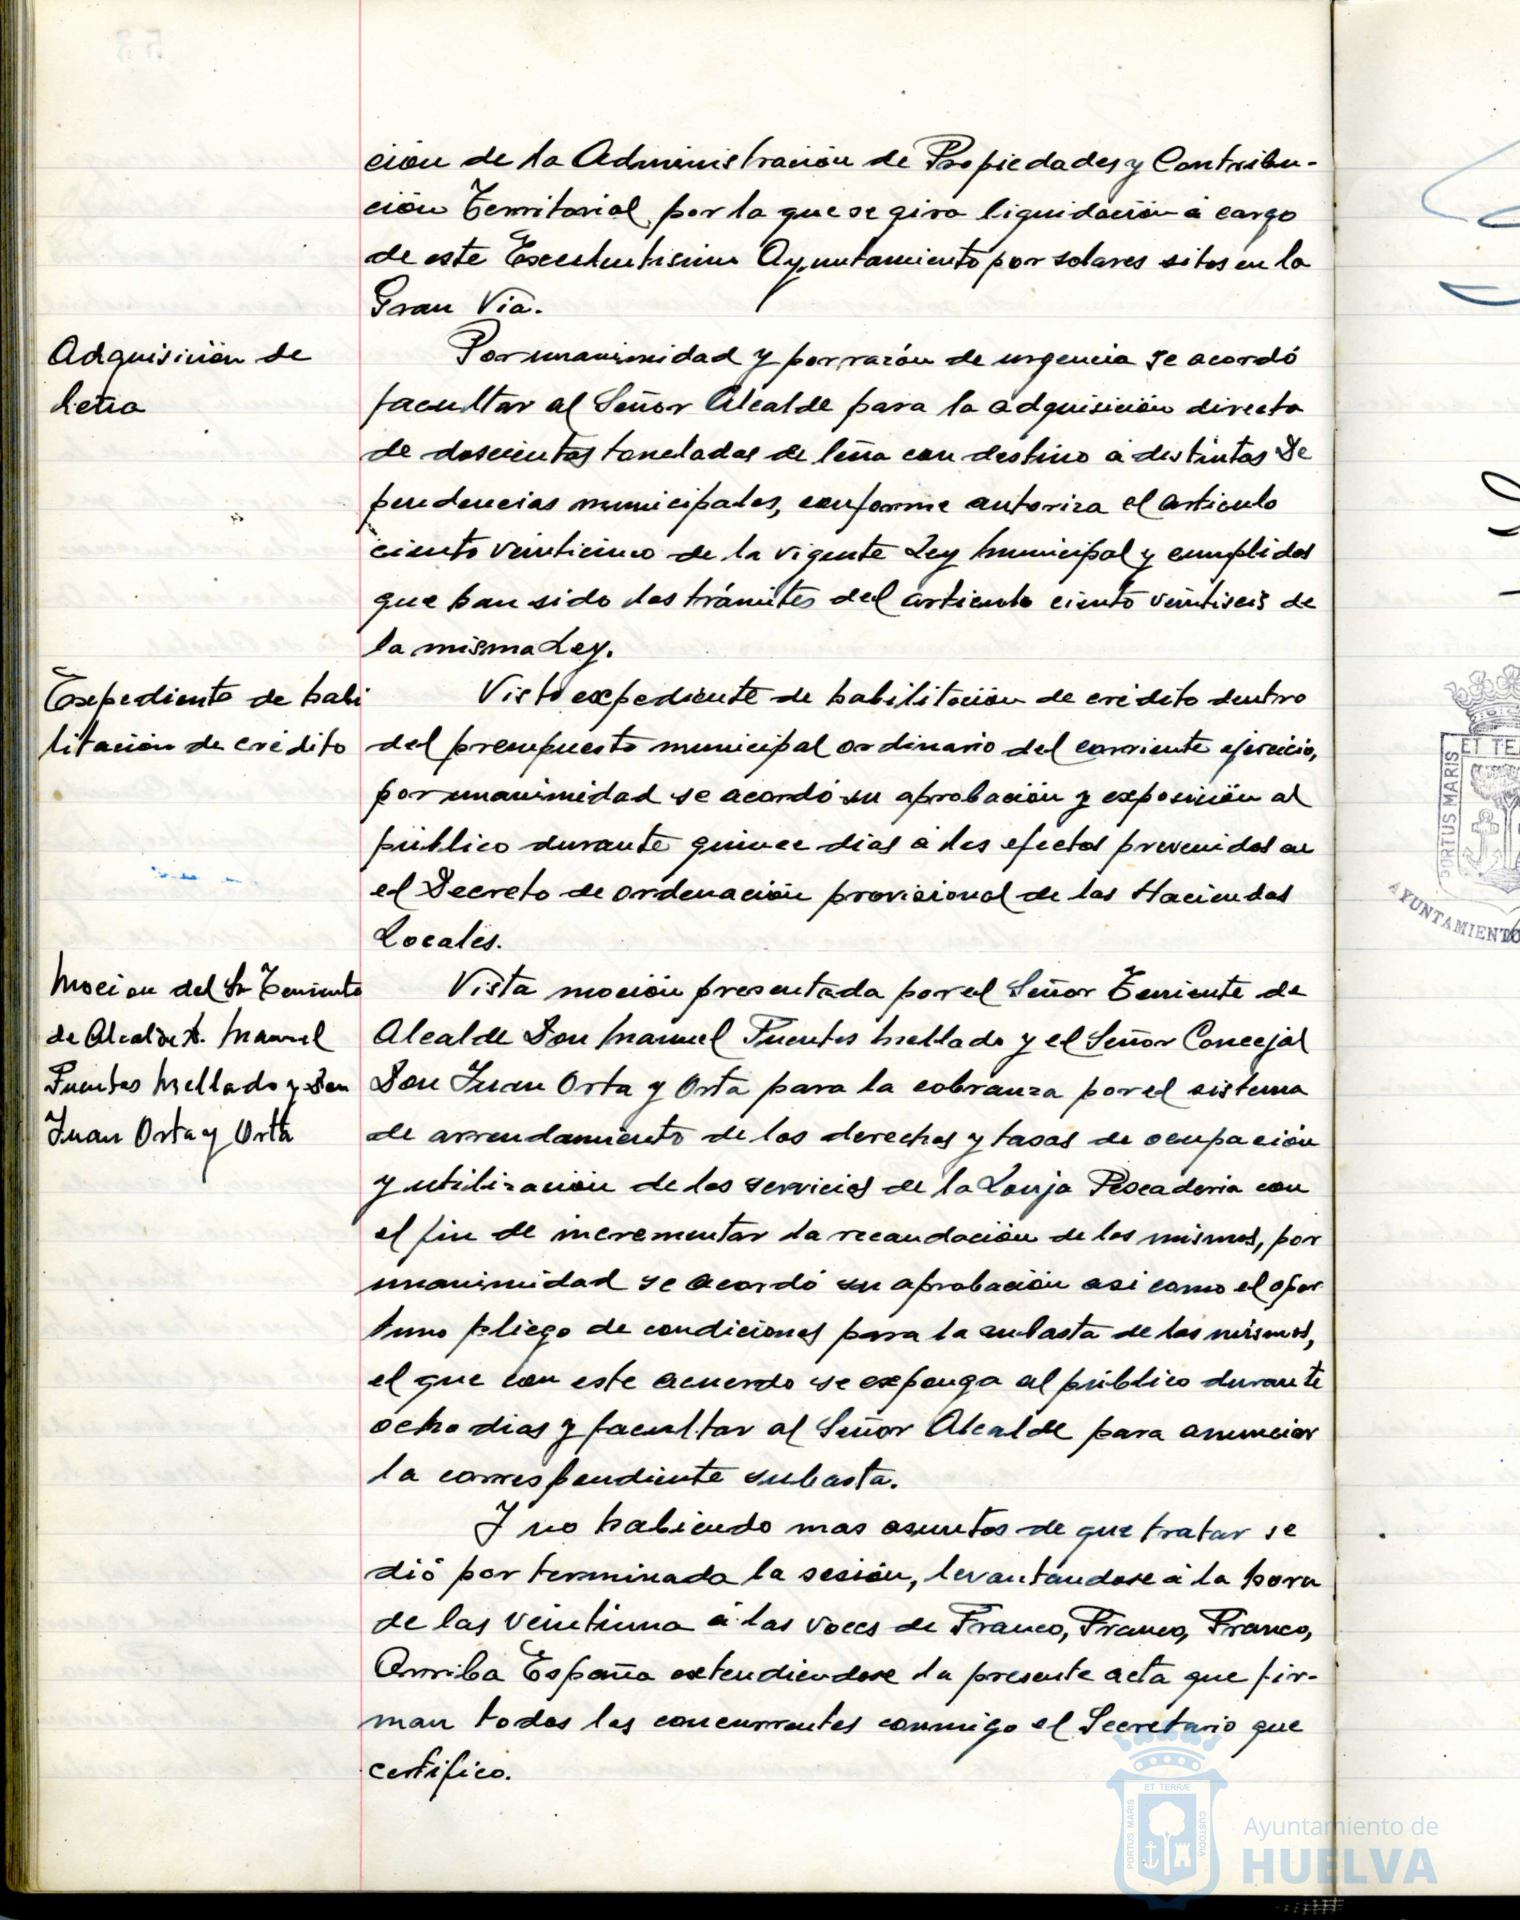 ción de la Administración de Propiedades y Contribu-
ción Territorial por la que se gira liquidación á cargo
de este Excelentisimo Ayuntamiento por solares sitos en la
Gran Via.
Adquisición de
leña
Por unanimidad y por razón de urgencia se acordó
facultar al Señor Alcalde para la adquisición directa
de doscientas toneladas de leña con destino a distintas De
pendencias municipales, conforme autoriza el articulo
ciento veinticinco de la vigente Ley Municipal y cumplidos
que han sido los trámites del articulo ciento veintiseis de
la misma Ley.
Expediente de habi
litación de crédito
Visto expediente de habilitación de crédito dentro
del presupuesto municipal ordinario del corriente ejercicio,
por unanimidad se acordó su aprobación y exposición al
público durante quince dias á los efectos prevenidos en
el Decreto de ordenación provisional de las Haciendas
Locales.
Mocion del Sr Teniente
de Alcalde D. Manuel
Fuentes Mellado y Don
Juan Orta y Orta
Vista moción presentada por el Señor Teniente de
Alcalde Don Manuel Fuentes Mellado y el Señor Concejal
Don Juan Orta y Orta para la cobranza por el sistema
de arrendamiento de los derechos y tasas de ocupación
y utilización de los servicios de la Lonja Pescaderia con
el fin de incrementar la recaudación de los mismos, por
unanimidad se acordó su aprobación asi como el opor
tuno pliego de condiciones para la subasta de los mismos,
el que con este acuerdo se exponga al público durante
ocho dias y facultar al Señor Alcalde para anunciar
la correspondiente subasta.
Y no habiendo mas asuntos de que tratar se
dió por terminada la sesión, levantándose á la hora
de las veintiuna á las voces de Franco, Franco, Franco,
Arriba España extendiendose la presente acta que fir-
man todos los concurrentes conmigo el Secretario que
certifico.
ET TE
PORTUS MARIS
AYUNTAMIENTO
ET TERRÆ
PORTUS MARIS
CUSTODIA
Ayuntamiento de
HUELVA